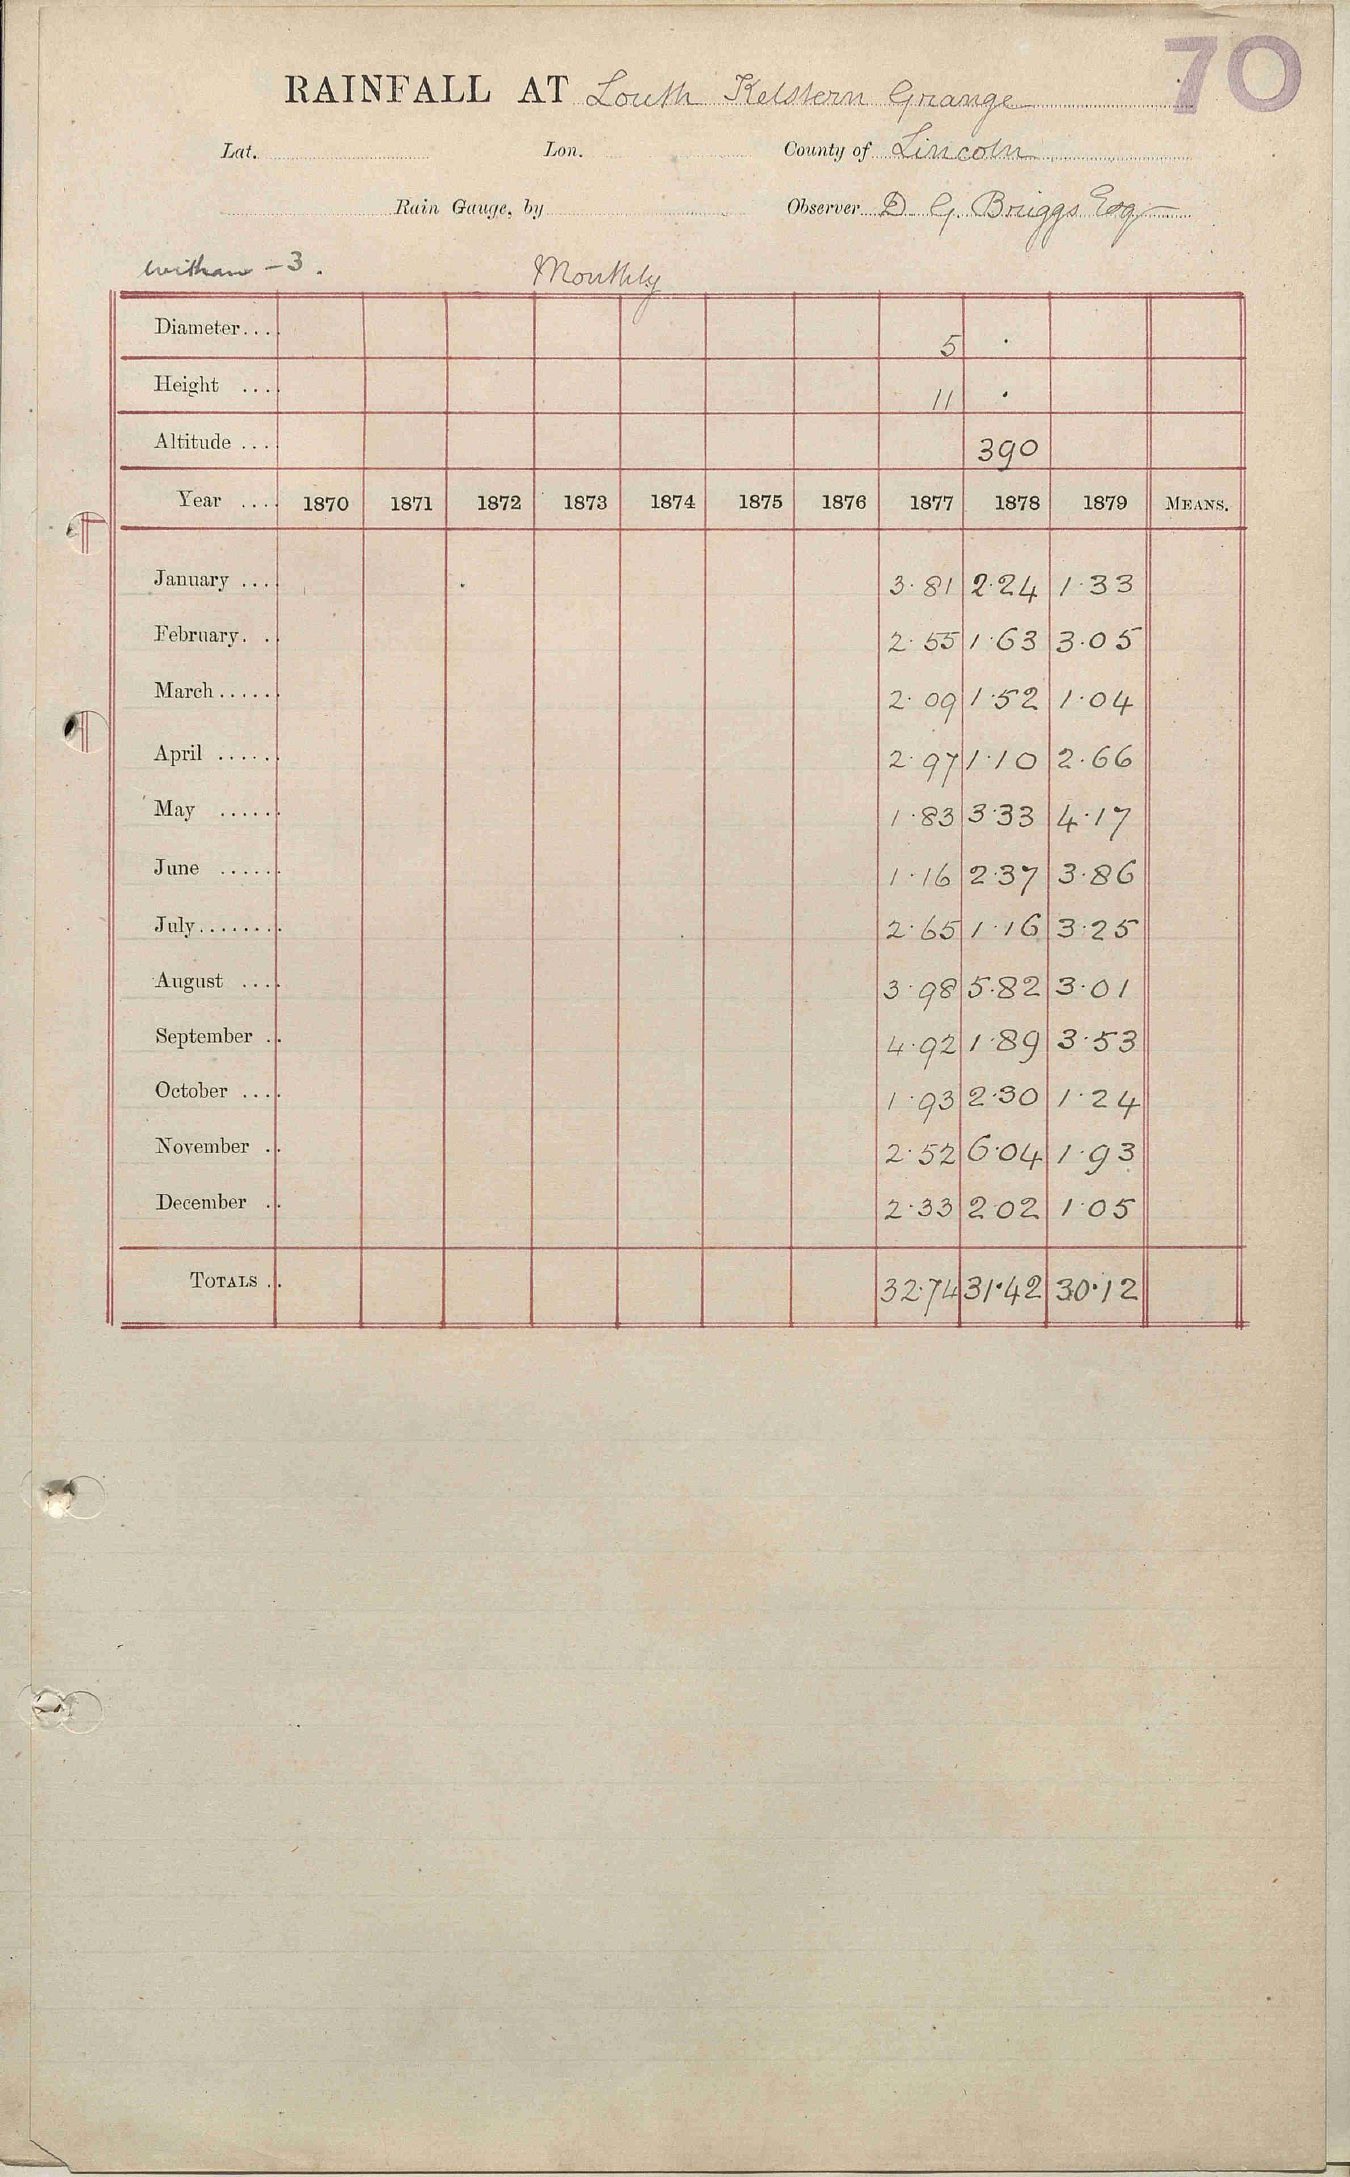 70
RAINFALL AT Louth Kelstern Grange
Lat. Lon. County of Lincoln
Rain Gauge, by Observer D G. Briggs Esq
Witham - 3. Monthly
Diameter.... 5 .
Height .... 11 .
Altitude .... 390
Year .... 1870 1871 1872 1873 1874 1875 1876 1877 1878 1879 MEANS.
January .... 3.81 2.24 1.33
February. .. 2.55 1.63 3.05
March...... 2.09 1.52 1.04
April ...... 2.97 1.10 2.66
May ...... 1.83 3.33 4.17
June ...... 1.16 2.37 3.86
July........ 2.65 1.16 3.25
August .... 3.98 5.82 3.01
September .. 4.92 1.89 3.53
October .... 1.93 2.30 1.24
November .. 2.52 6.04 1.93
December .. 2.33 2.02 1.05
TOTALS .. 32.74 31.42 30.12